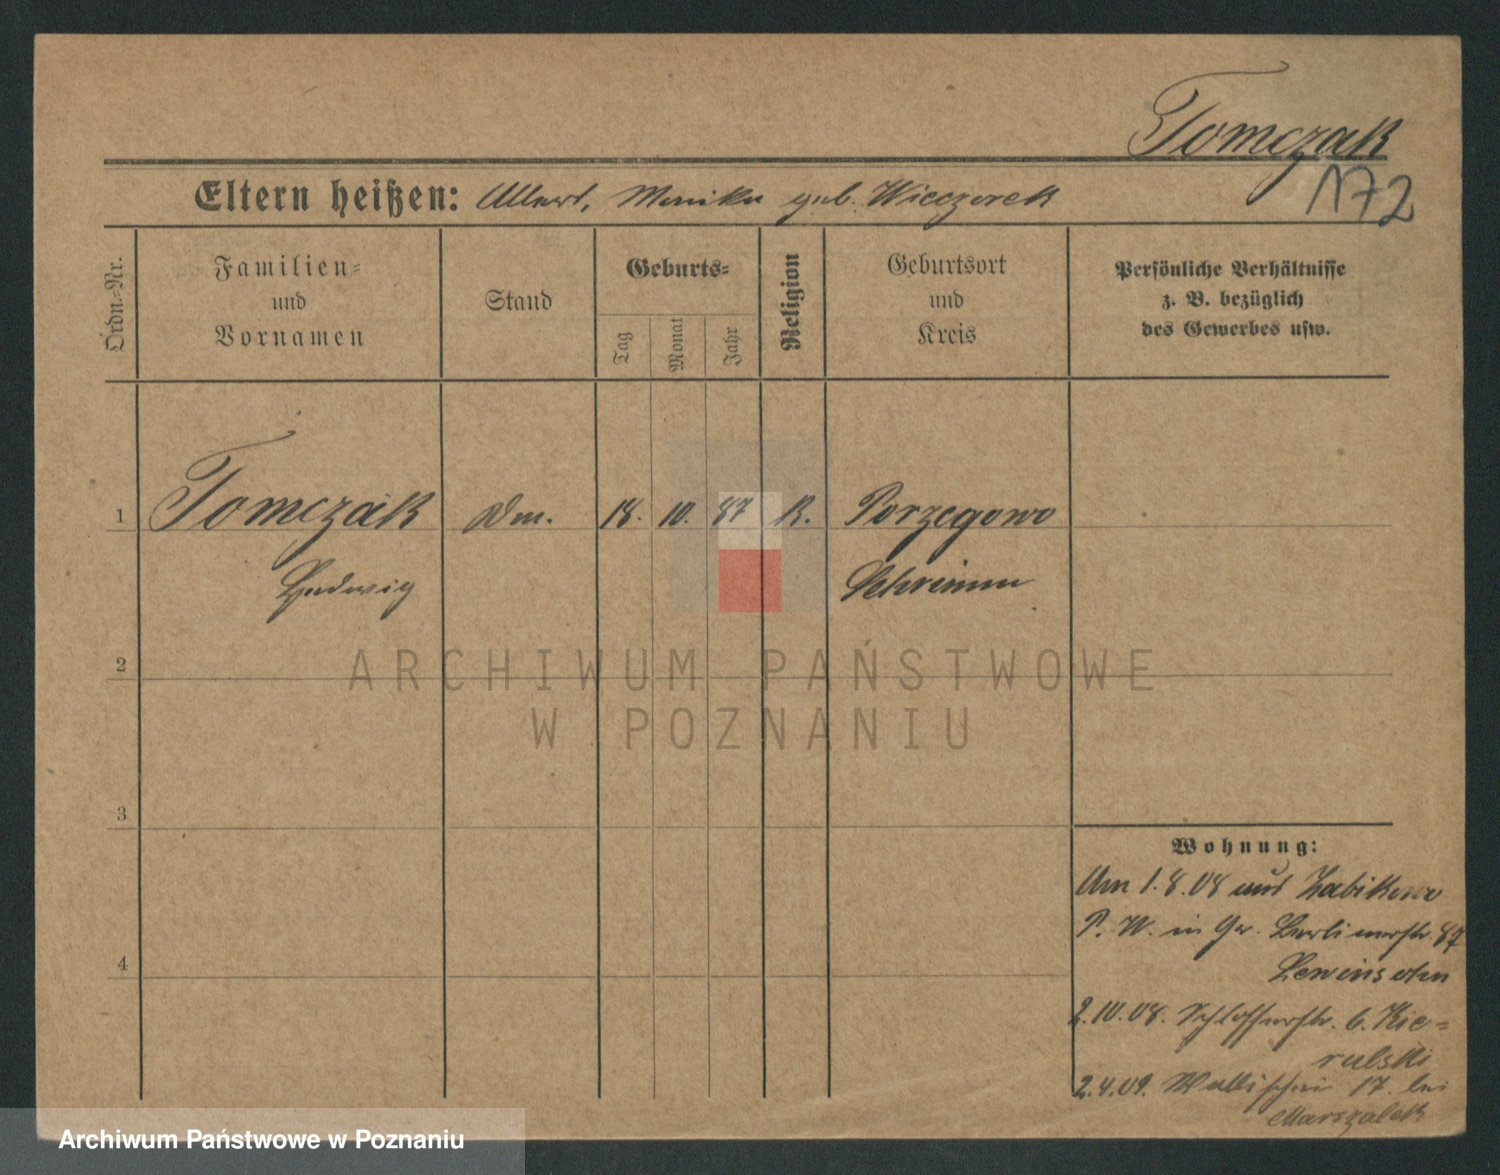 Tomczak
172
Eltern heißen: Albert, Monika geb. Wieczorek
Ordn.-Nr.
Familien-
und
Vornamen
Stand
Geburts-
Tag
Monat
Jahr
Religion
Geburtsort
und
Kreis
Persönliche Verhältnisse
z. B. bezüglich
des Gewerbes usw.
1 Tomczak Dm. 18. 10. 87 K. Porzegowo
Hedwig Schrimm
2
3
4
ARCHIWUM PAŃSTWOWE
W POZNANIU
Wohnung:
Am 1.8.08 aus Zabikowo
P. W. in Gr. Berlinerstr. 87
Lewinsohn
2.10.08. Schlosserstr. 6. Kie-
rulski
2.4.09. Wallischei 17. bei
Marszalek
Archiwum Państwowe w Poznaniu